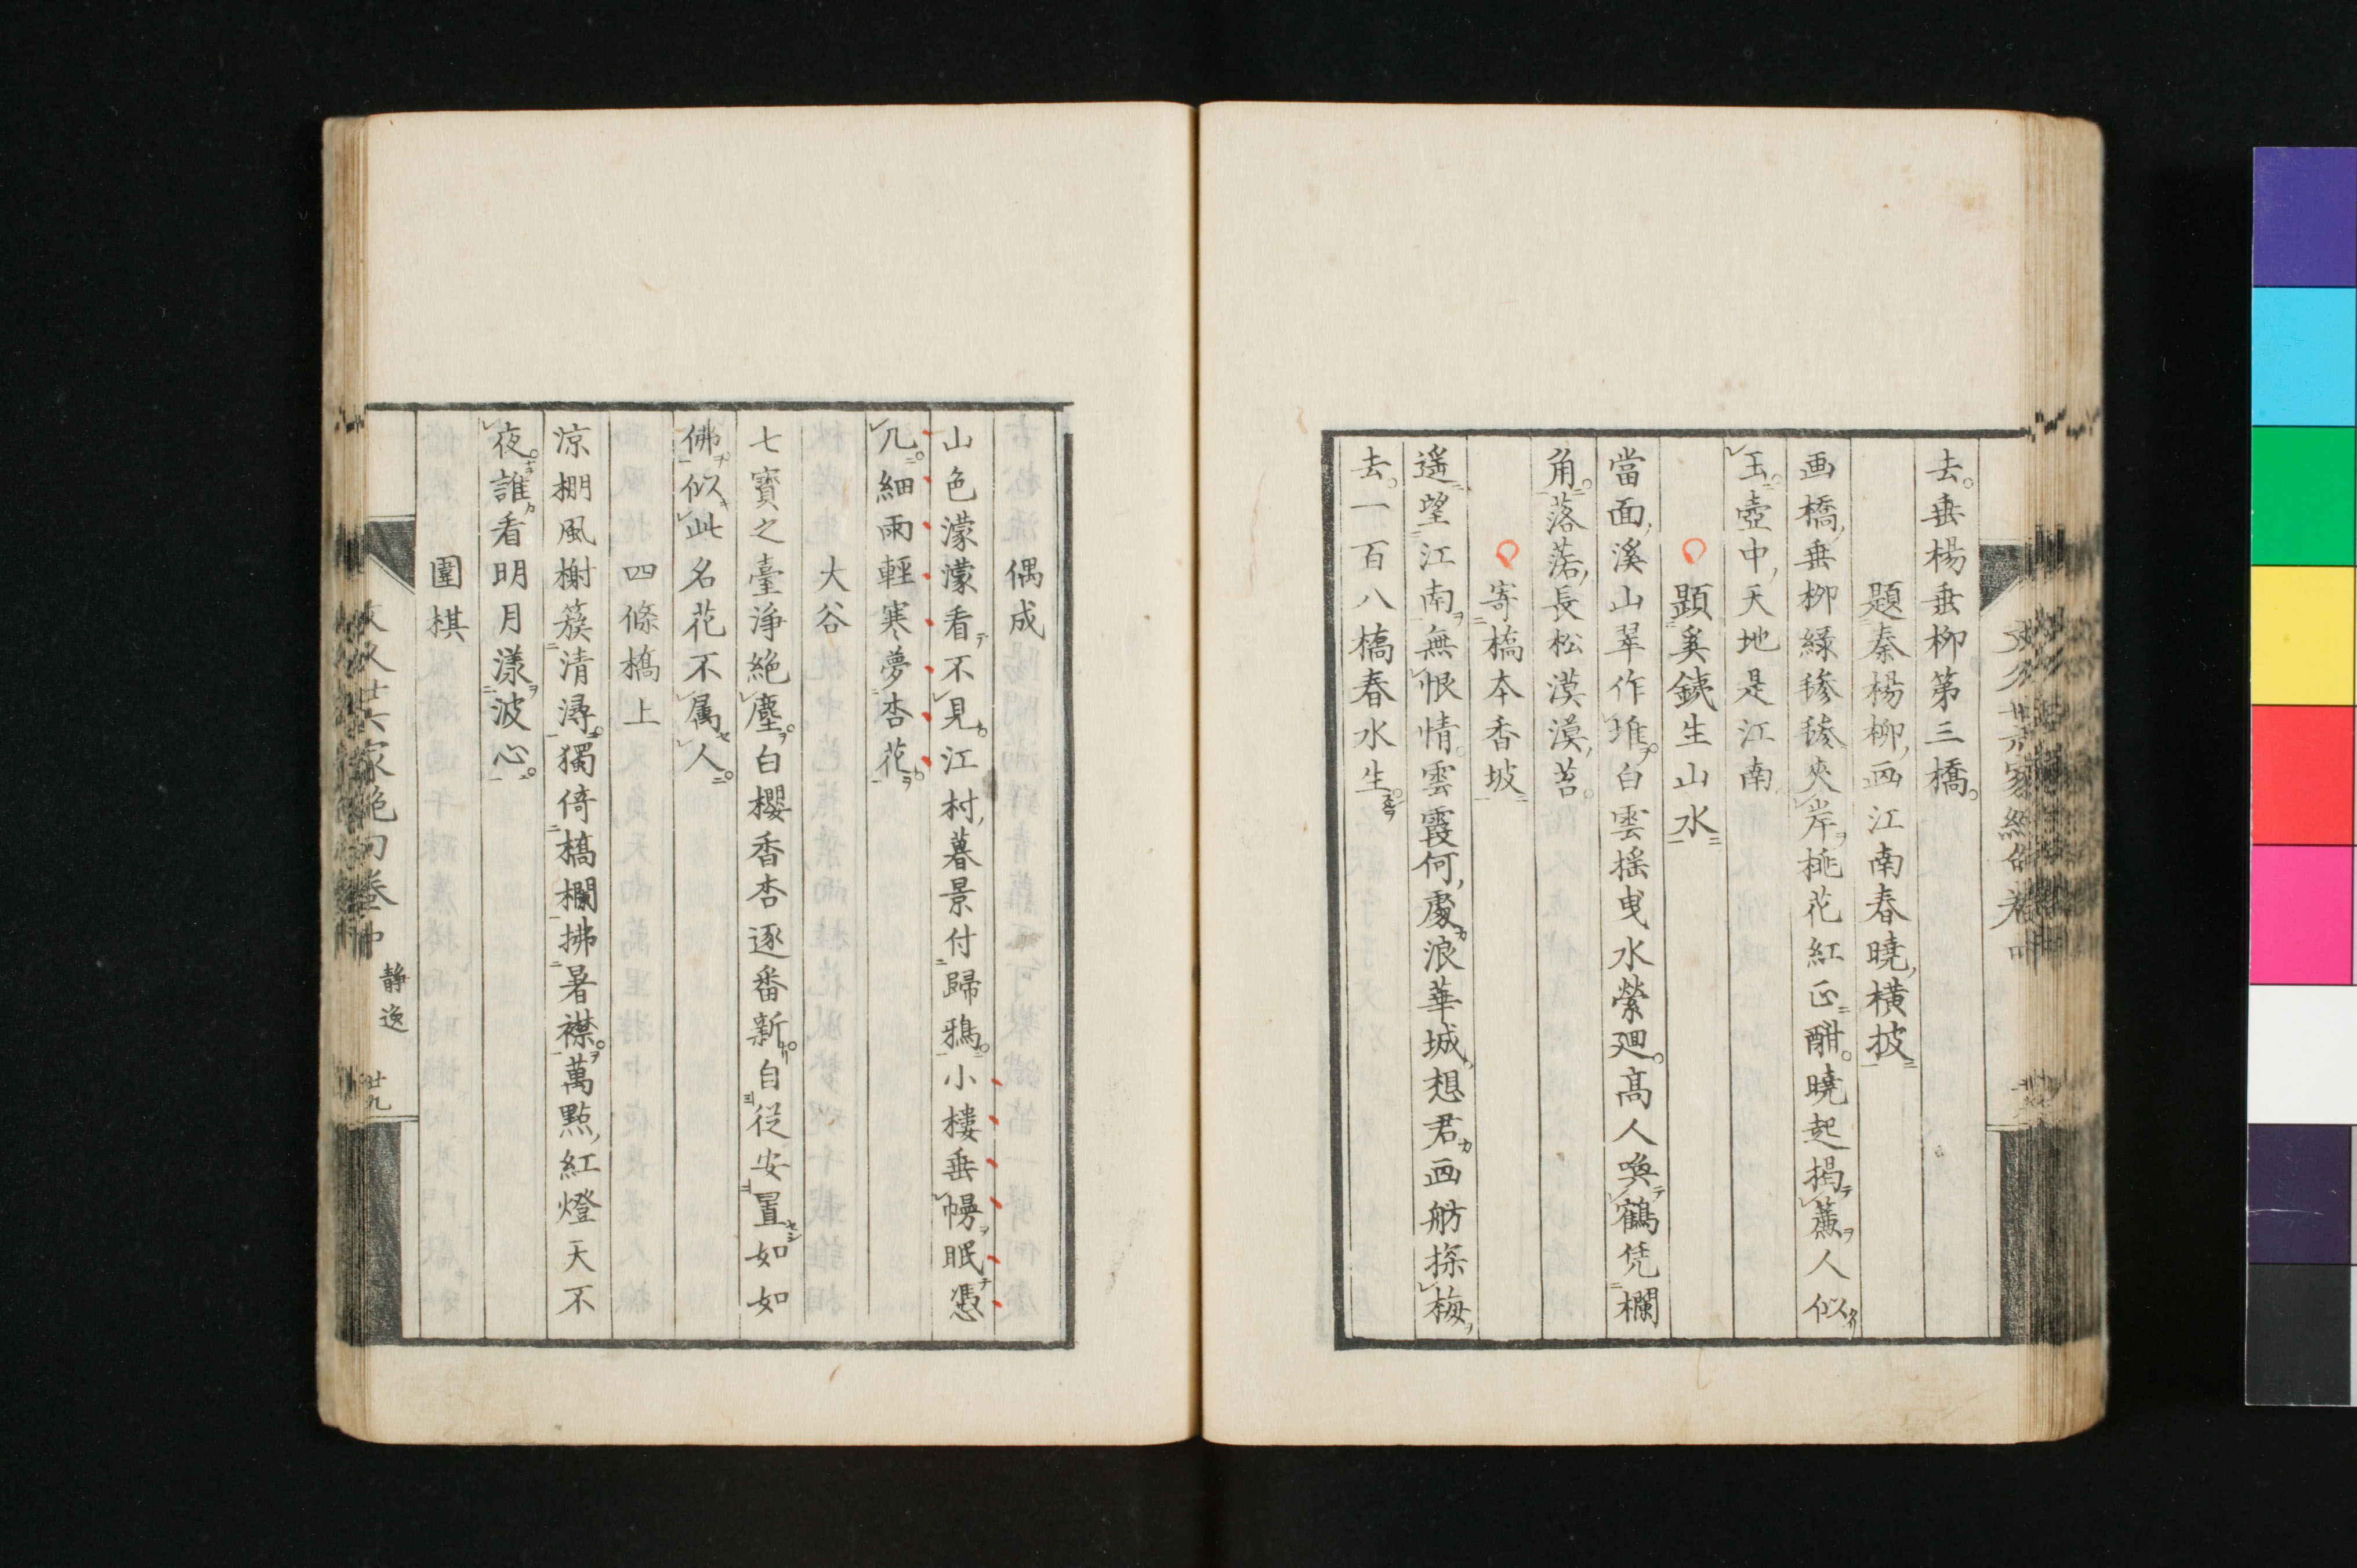 去。垂楊垂柳第三橋。
題秦楊柳、画江南春曉、横披
画橋、垂柳緑毿毿夾岸桃花紅正酣。曉起揭簾人似
玉。壺中、天地是江南
題奚鉄生山水
當面、溪山翠作堆。白雲揺曳水縈廻。高人喚鶴凭欄
角。落落、長松漠漠、苔。
寄橋本香坡
遥望江南無恨情。雲霞何、處浪華城、想君画舫探梅
去。一百八橋春水生。
偶成
山色濛濛看不見。江村、暮景付歸鴉。小樓垂幔眠憑
几。細雨輕寒夢杏花。
大谷
七寶之臺淨絶塵。白櫻香杏逐番新。自從安置如如
佛似此名花不属人。
四條橋上
涼棚風榭簇清潯。獨倚橋欄拂暑襟。萬點、紅燈天不
夜。誰看明月漾波心。
圍棋
文久廿六家絶句巻中
静逸
廿九